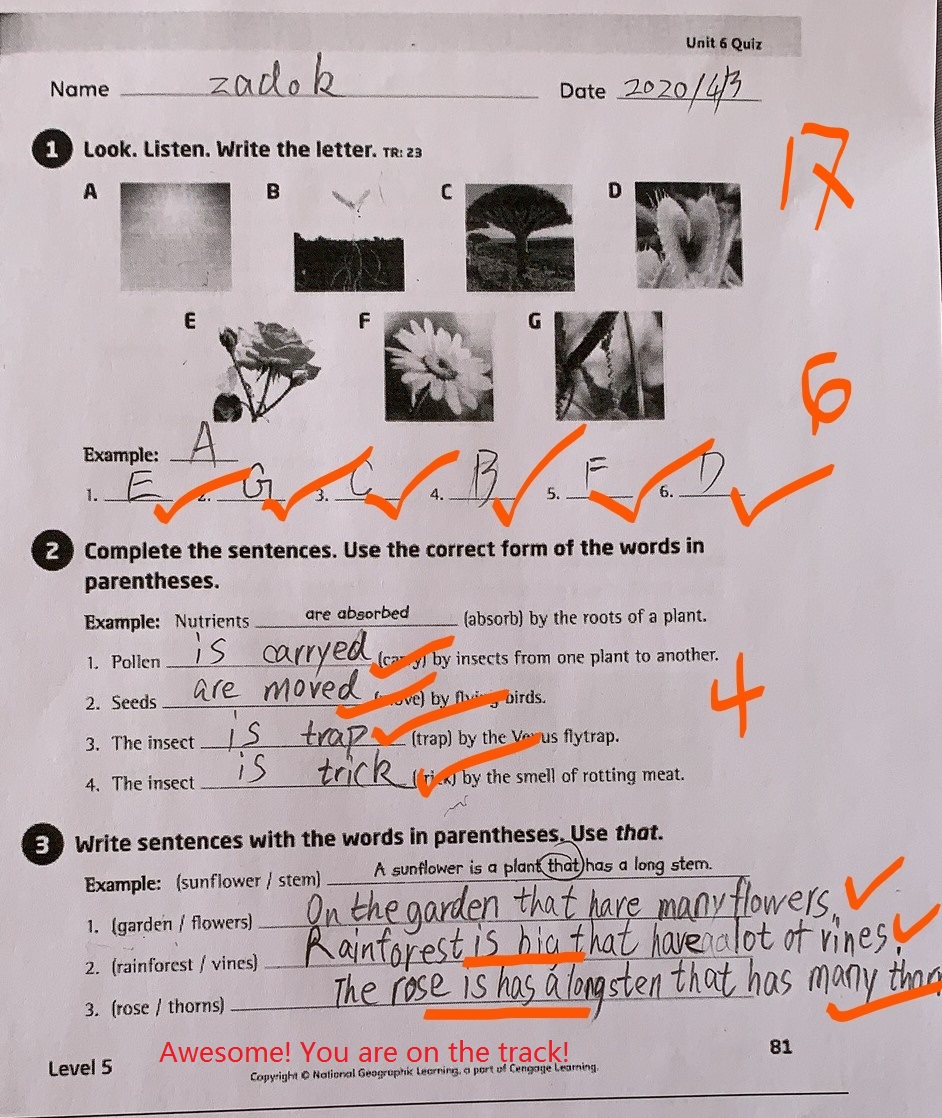 Unit 6 Quiz
Name zadok Date 2020/4/3
17
1 Look. Listen. Write the letter. TR: 23
A B C D
E F G
6
Example: A
1. E 2. G 3. C 4. B 5. F 6. D
2 Complete the sentences. Use the correct form of the words in
parentheses.
Example: Nutrients are absorbed (absorb) by the roots of a plant.
1. Pollen is carryed (carry) by insects from one plant to another.
2. Seeds are moved (move) by flying birds.
4
3. The insect is trap (trap) by the Venus flytrap.
4. The insect is trick (trick) by the smell of rotting meat.
3 Write sentences with the words in parentheses. Use that.
Example: (sunflower / stem) A sunflower is a plant that has a long stem.
1. (garden / flowers) On the garden that have many flowers.
2. (rainforest / vines) Rainforest is big that have a lot of vines.
3. (rose / thorns) The rose is has a long sten that has many thor
Awesome! You are on the track!
81
Level 5
Copyright © National Geographic Learning, a part of Cengage Learning.